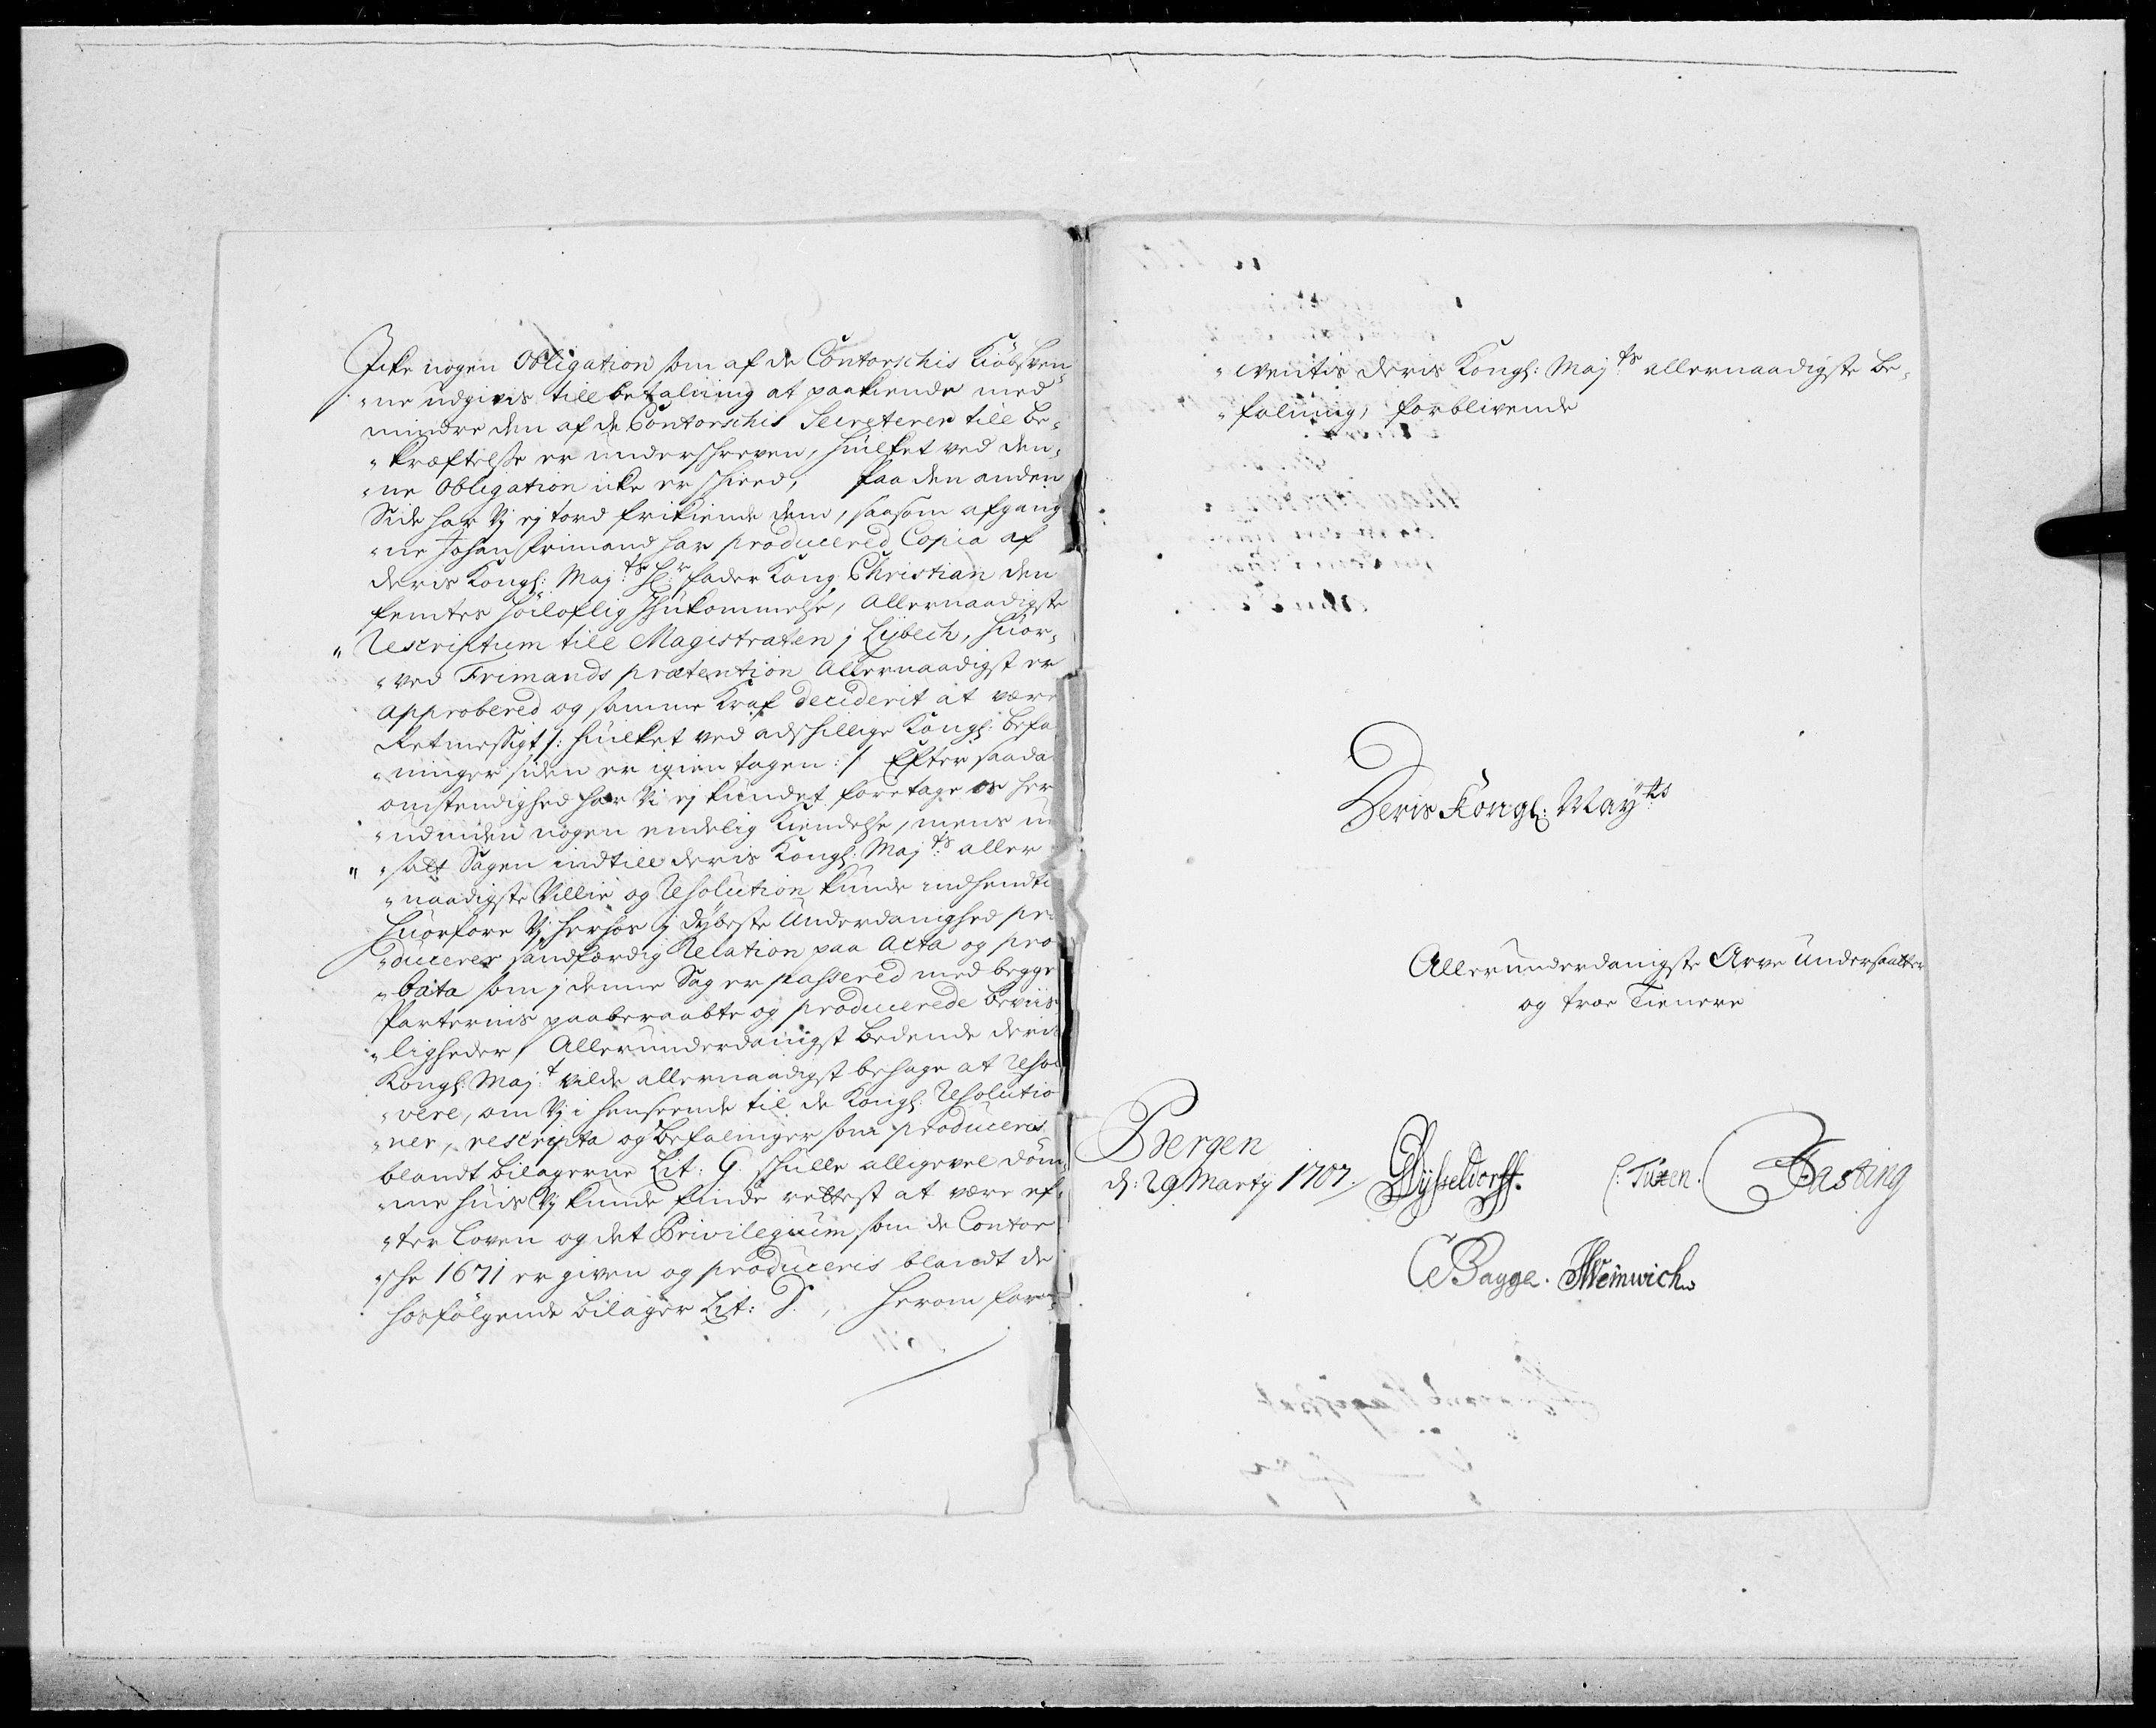 Icke nogen Obligation som af de Contorschis Kiöbsven„
„ne udgivis till betalning at paakiende med
mindre den af de Contorschis Secreterer till be„
„kræftelsse er underschreven, huilket ved den„
„ne Obligation icke er schieed, Paa den anden
Side har Vj ej tord frikiende dem, saasom afgang„
„ne Johan Frimand har producered Copia af
deris Kongl: Maj:ts Sl:r fader Kong Christian den
femtes höiloflig Ihukommelse, Allernaadigste
„Rescriptum till Magistraten j Lybech, huor„
„ved Frimands prætention Allernaadigst er
approbered og samme Kraf deciderit at være
Retmessigt /: huilket ved adschillige Kongl: befa
„ninger siden er igien tagen :/ Efter saada
omstendighed har Vi ej kundet foretage os her
„udinden nogen endelig Kiendelse, mens u
„satt Sagen indtill deris Kongl: Maj:ts aller
„naadigste Villie og Resolution kunde indhendte
huorfore Vj herhos j dybeste Underdanighed pro
„ducerer sandfærdig Relation paa Acta og pro
„bata som j denne Sag er passered med begge
Parternis paaberaabte og producerede beviis
„ligheder, Allerunderdanigst bedende deris
Kongl: Maj:t vilde allernaadigst behage at Resol
„vere, om Vj i henseende til de Kongl: Resolutio
„ner, rescripta og befalinger som produceris
blandt bilagerne Lit: G. schulle alligevel döm„
„me huis Vj kunde finde rettest at være ef„
„ter Loven og det Privilegium som de Contor
„sche 1671 er given og produceris blandt de
hosfölgende bilager Lit: D., herom for„
„ventis deris Kongl: Maj:ts allernaadigste be„
„falning, forblivende
Deris Kongl: May:ts
Allerunderdanigste Arve undersaatter
og troe Tienere
Bergen
d: 29 Martij 1707. Dysseldorff. C: Tuxen. Fasting
CBagge. Weinwich